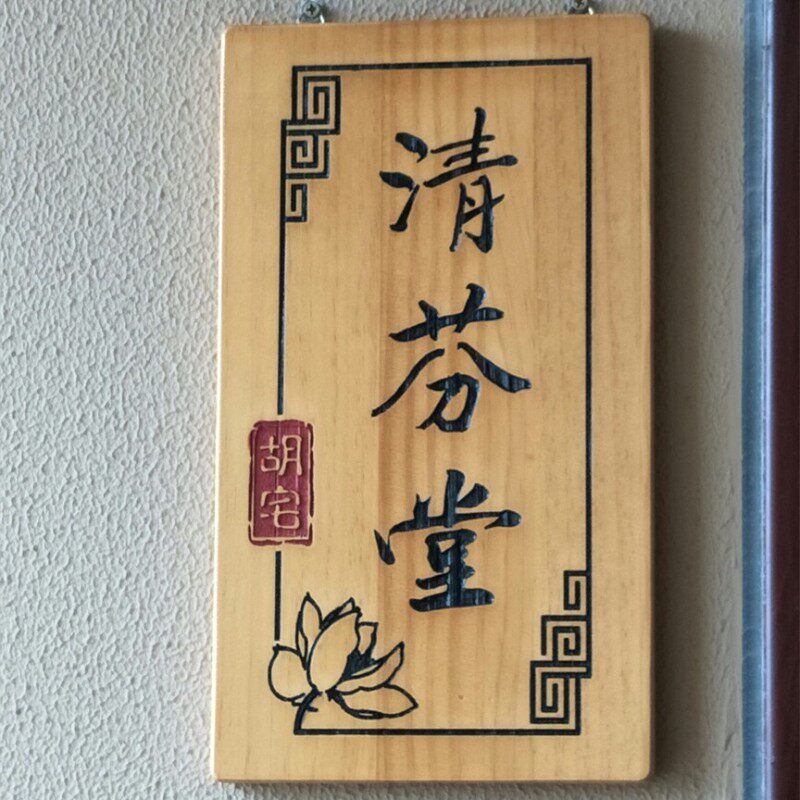 清芬堂
胡宅